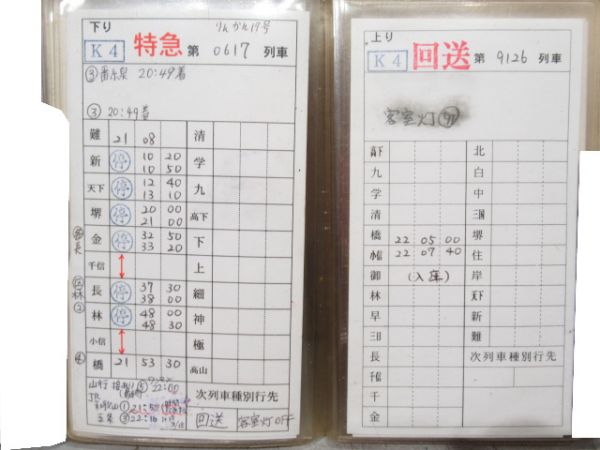 下り りんかん19号
K4 特急 第 0617 列車
③番糸県 20:49着
③ 20:49着
難 21 08 清
新 停 10 20 学
10 50
天下 停 12 40 九
13 10
堺 停 20 00 高下
21 00
金 停 32 50 下
33 20
千信 上
長 停 37 30 細
38 00
林 停 48 00 神
48 30
小信 極
④ 橋 21 53 30 高山
次列車種別行先
回送 客室灯OFF
上り
K4 回送 第 9126 列車
客室灯
高下 北
九 白
学 中
清 三国
橋 22 05 00 堺
22 07 40 住
御 (入庫) 岸
林 天下
早 新
三日 難
長 次列車種別行先
千信
千
金